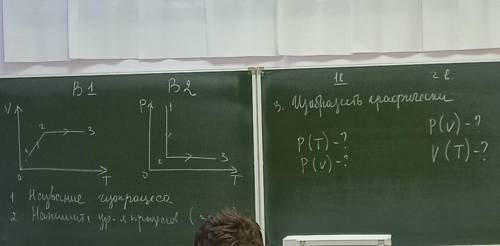 В1 В2
V 2 3 1 0 T
P 1 2 3 0 T
1 Название изопроцесса
2. Напишите ур-я процессов (
1в. 2 в.
3. Изобразить графически
P(T)-?
P(V)-?
P(V)-?
V(T)-?